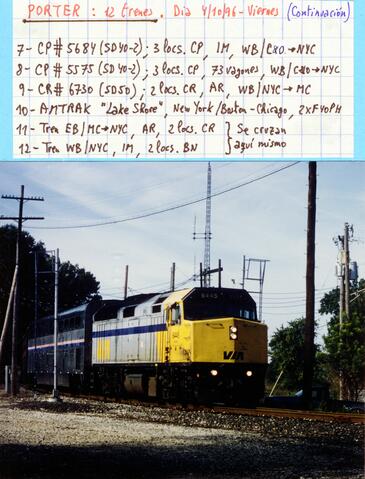 PORTER : 12 trenes. Dia 4/10/96 - Viernes (Continuación)
7- CP# 5684 (SD40-2); 3 locs. CP, IM, WB/CHO→NYC
8- CP# 5575 (SD40-2); 3 locs. CP, 73 vagones, WB/CHO→NYC
9- CR# 6730 (SD50); 2 locs. CR, AR, WB/NYC → MC
10- AMTRAK "Lake Shore", New York/Boston-Chicago, 2xF40PH
11- Tren EB/MC→NYC, AR, 2 locs. CR } Se cruzan
12- Tren WB/NYC, IM, 2 locs. BN } aquí mismo
VIA